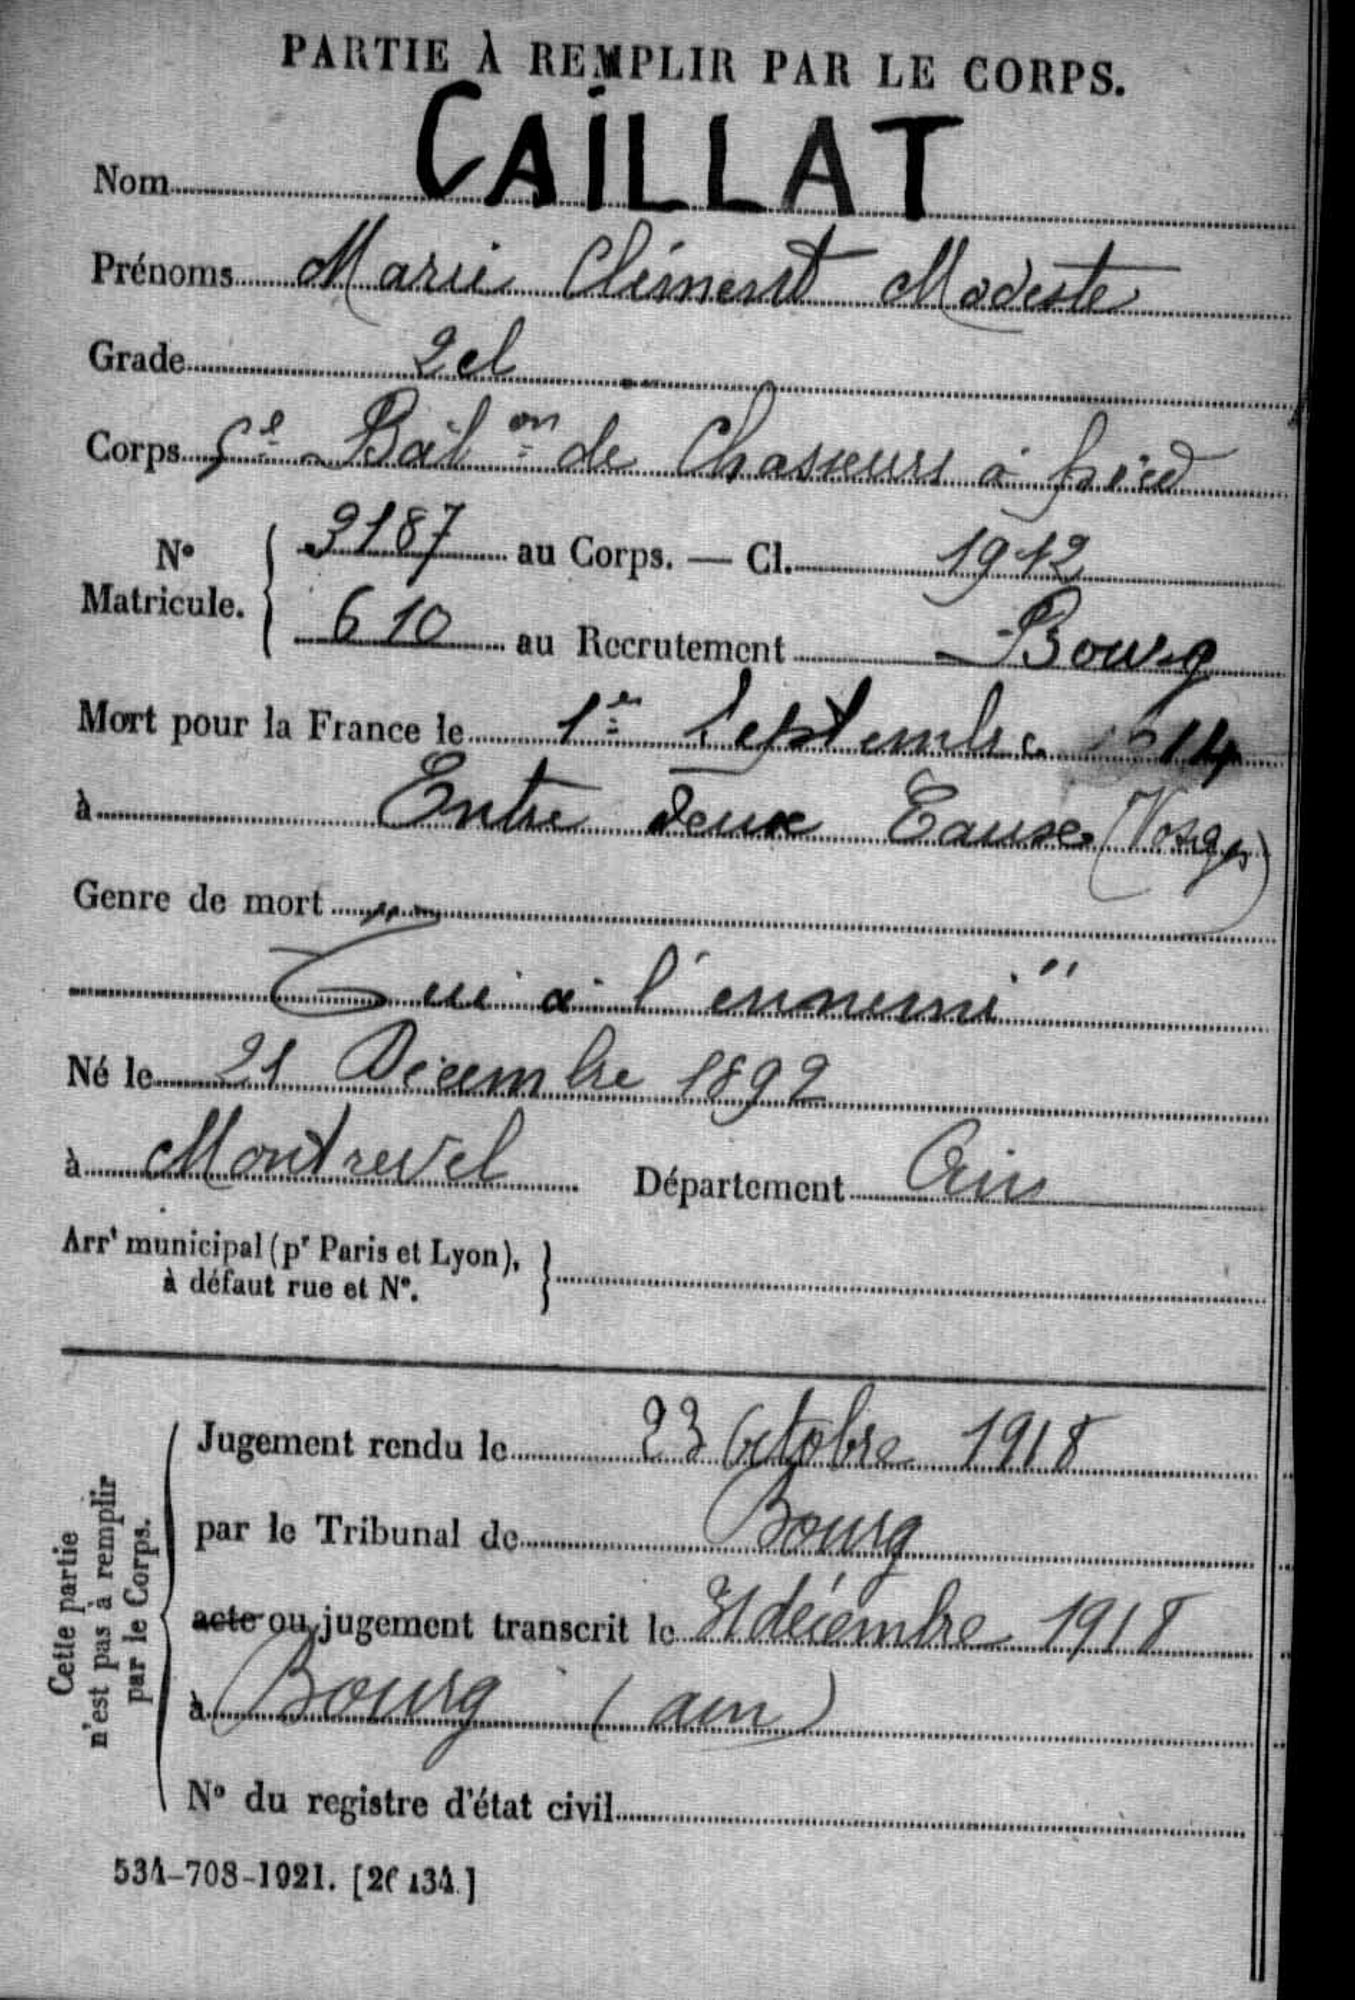 PARTIE À REMPLIR PAR LE CORPS.
Nom CAILLAT
Prénoms Marie Clément Modeste
Grade 2 cl
Corps 5e Baton de Chasseurs à pied
No Matricule. 3187 au Corps. — Cl. 1912
610 au Recrutement Bourg
Mort pour la France le 1er Septembre 1914
à Entre deux Eaux (Vosges)
Genre de mort "
Tué à l'ennemi"
Né le 21 Décembre 1892
à Montrevel Département Ain
Arrt municipal (pr Paris et Lyon),
à défaut rue et No.
Cette partie
n'est pas à remplir
par le Corps.
Jugement rendu le 23 Octobre 1918
par le Tribunal de Bourg
acte ou jugement transcrit le 31 décembre 1918
à Bourg (ain)
No du registre d'état civil
534-708-1921. [26134.]